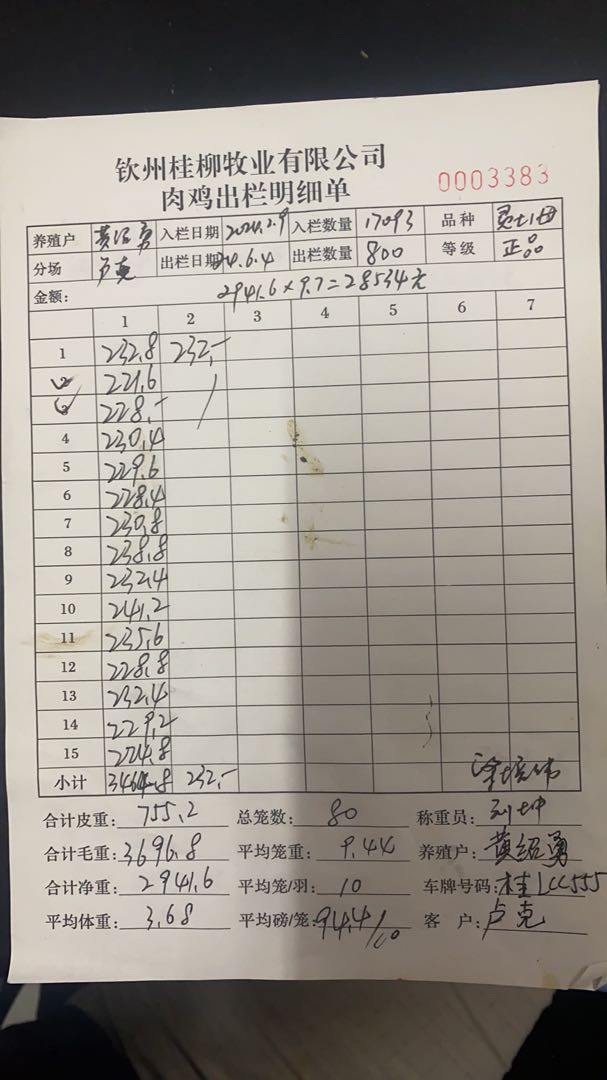 钦州桂柳牧业有限公司
肉鸡出栏明细单
0003383
养殖户 黄绍勇 入栏日期 2024.2.9 入栏数量 17093 品种
分场 卢克 出栏日期 24.6.4 出栏数量 800 等级 正品
金额: 2941.6×9.7=28534元
1 2 3 4 5 6 7
1 232.8 232.-
2 221.6
3 228.-
4 230.4
5 229.6
6 228.4
7 230.8
8 238.8
9 232.4
10 241.2
11 235.6
12 228.8
13 232.4
14 229.2
15 224.8
小计 3464.8 232.-
合计皮重: 755.2 总笼数: 80 称重员:
合计毛重: 3696.8 平均笼重: 9.44 养殖户: 黄绍勇
合计净重: 2941.6 平均笼/羽: 10 车牌号码: 桂LCC555
平均体重: 3.68 平均磅/笼: 94.4/10 客 户: 卢克